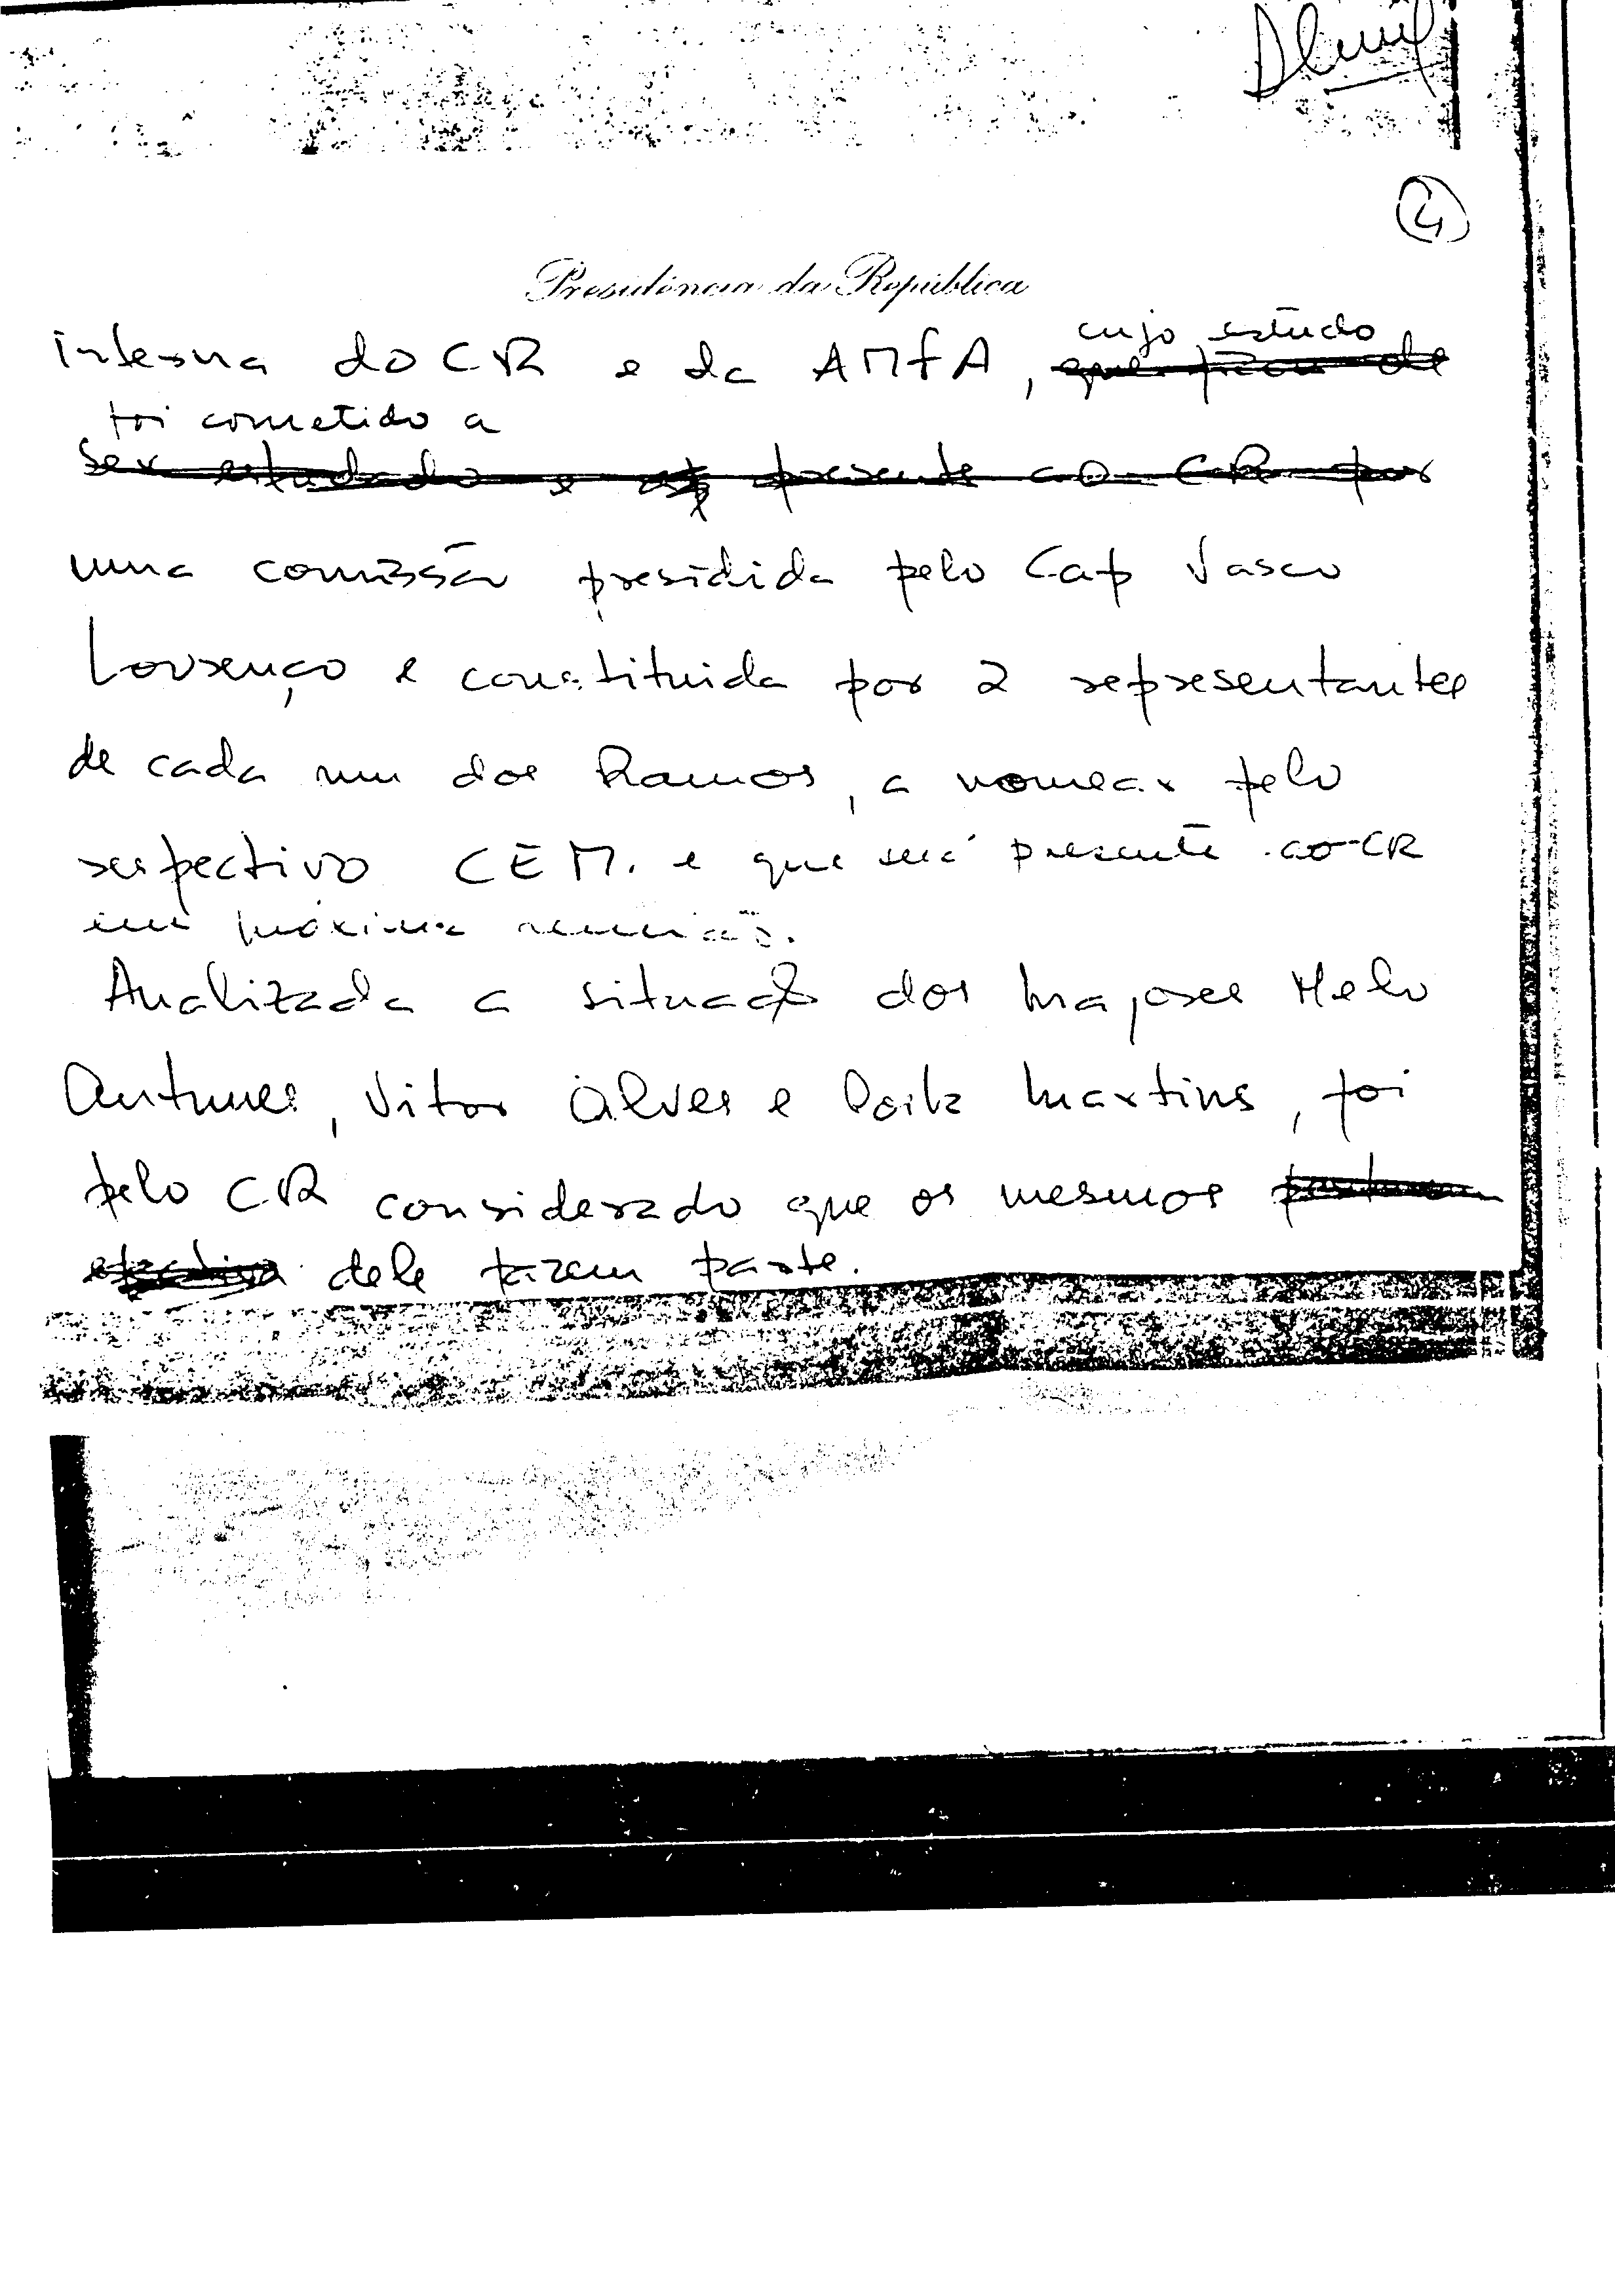 4
Presidência da República
cujo estudo
interna do CR e da AMFA, que ficou de
foi cometido a
ser estudado e presente ao CR por
uma comissão presidida pelo Cap Vasco
Lourenço e constituida por 2 representantes
de cada um dos Ramos, a nomear pelo
respectivo CEM. e que será presente ao CR
em próxima reunião.
Analizada a situação dos majores Melo
Antunes, Vitor Alves e Costa Martins, foi
pelo CR considerado que os mesmos
dele fazem parte.